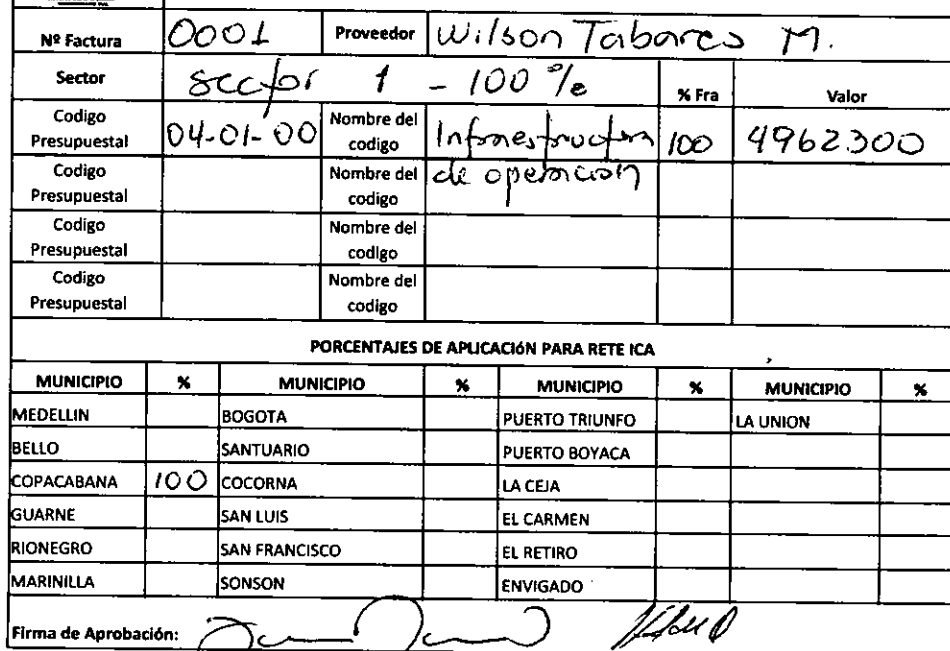 Nº Factura 0001 Proveedor Wilson Tabares M.
Sector sector 1 - 100 % % Fra Valor
Codigo Presupuestal 04-01-00 Nombre del codigo Infraestructura de operacion 100 4962300
Codigo Presupuestal Nombre del codigo
Codigo Presupuestal Nombre del codigo
Codigo Presupuestal Nombre del codigo
PORCENTAJES DE APLICACIÓN PARA RETE ICA
MUNICIPIO % MUNICIPIO % MUNICIPIO % MUNICIPIO %
MEDELLIN BOGOTA PUERTO TRIUNFO LA UNION
BELLO SANTUARIO PUERTO BOYACA
COPACABANA 100 COCORNA LA CEJA
GUARNE SAN LUIS EL CARMEN
RIONEGRO SAN FRANCISCO EL RETIRO
MARINILLA SONSON ENVIGADO
Firma de Aprobación: